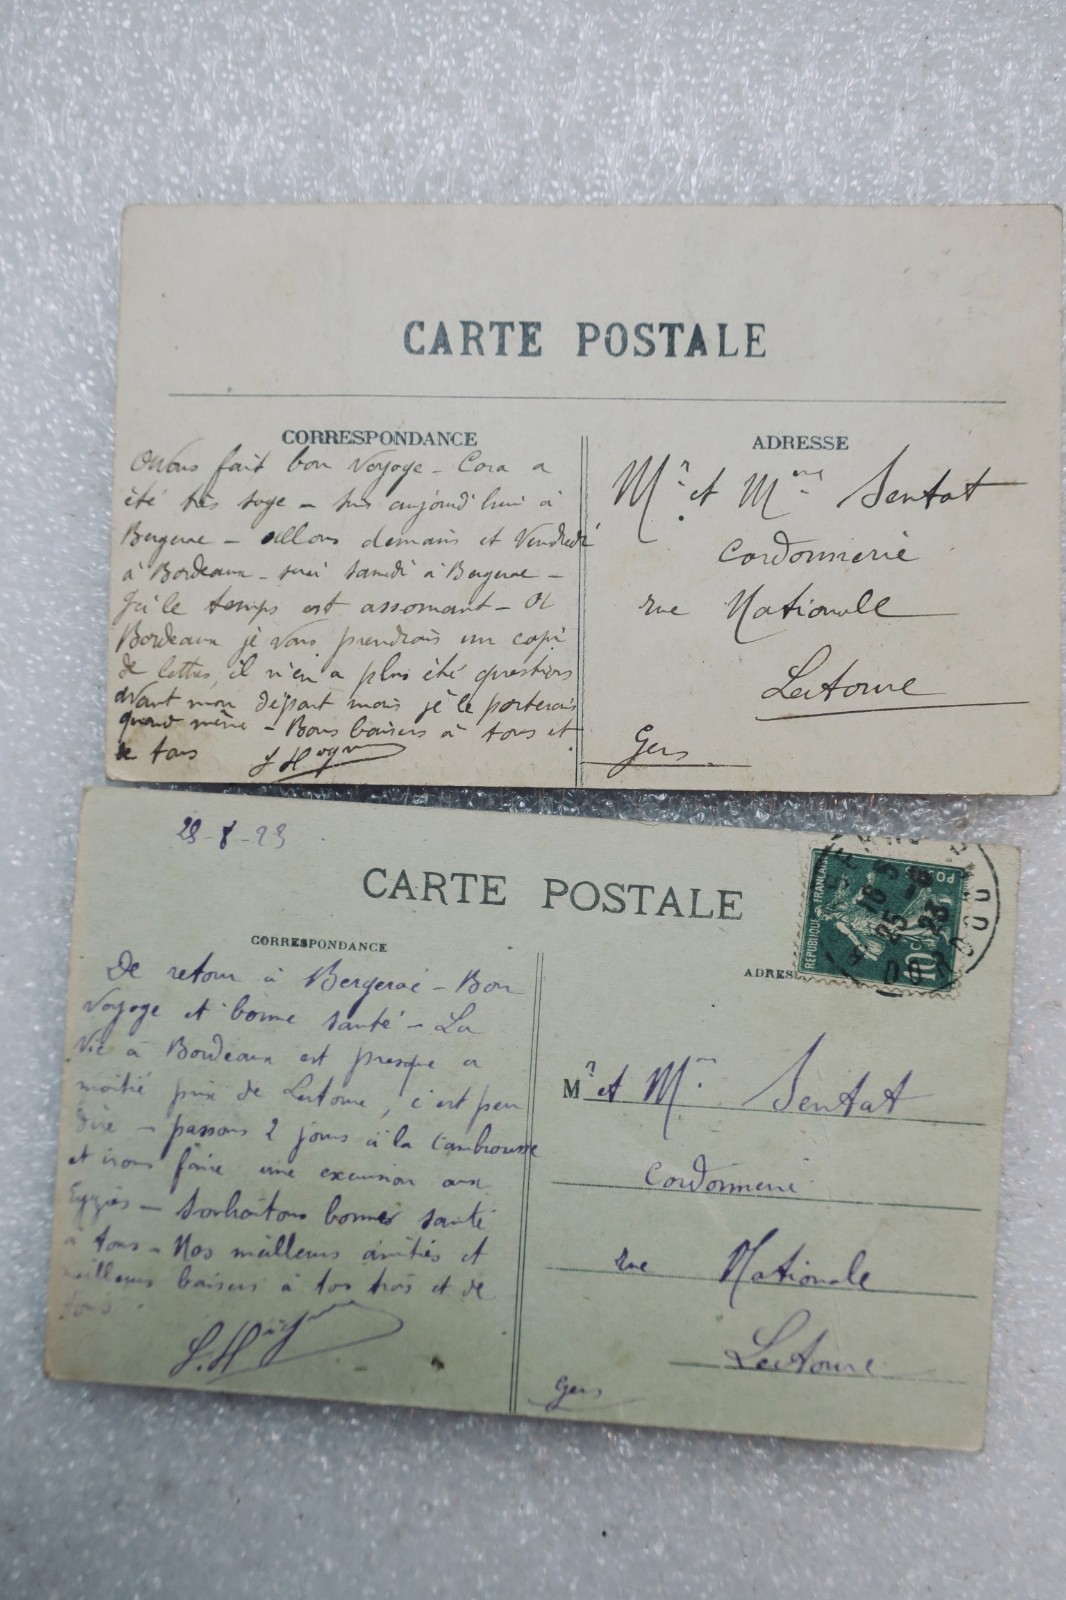 CARTE POSTALE
CORRESPONDANCE
ADRESSE
Avons fait bon Voyage - Cora a
été très sage - suis aujourd'hui à
Bergerac - allons demain et Vendredi
à Bordeaux - serai samedi à Bergerac -
le temps est assomant - A
Bordeaux je vous prendrais un copi
de lettres, il n'en a plus été questions
avant mon départ mais je le porterais
quand même - Bons baisers à tous et
de tous
Mr et Mme Sentat
Cordonnerie
rue Nationale
Lectoure
Gers
23-8-23
CARTE POSTALE
CORRESPONDANCE
ADRES
REPUBLIQUE FRANÇAISE
PO
10c
18
25
23
De retour à Bergerac - Bon
Voyage et bonne santé - La
Vie à Bordeaux est presque a
moitié prix de Lectoure, c'est peu
dire - passons 2 jours à la cambrousse
et irons faire une excursion aux
Eyzies - Souhaitons bonnes santé
à tous - Nos meilleurs amitiés et
meilleurs baisers à tos trois et de
tous
Mr et Mme Sentat
Cordonnerie
rue Nationale
Lectoure
Gers